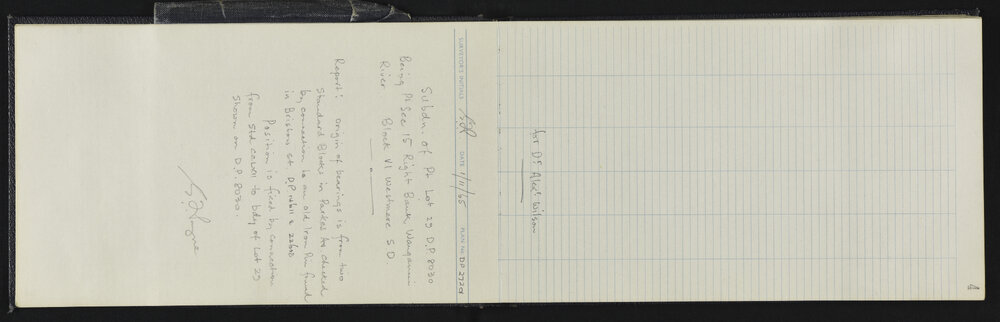 4
SURVEYOR'S INITIALS DATE 1/11/65 PLAN No. D.P. 27201
for Dr. Alec Wilson
Subdn. of Pt Lot 29 D.P. 8030
Being Pt Sec 15 Right Bank, Wanganui
River. Block VI Westmere S.D.
Report: origin of bearings is from two
Standard Blocks in Parkes Av checked
by connection to an old Iron Pin found
in Brisbane St D.P.
Position is fixed by connection
from Std corner to bdy of Lot 29
shown on D.P. 8030.